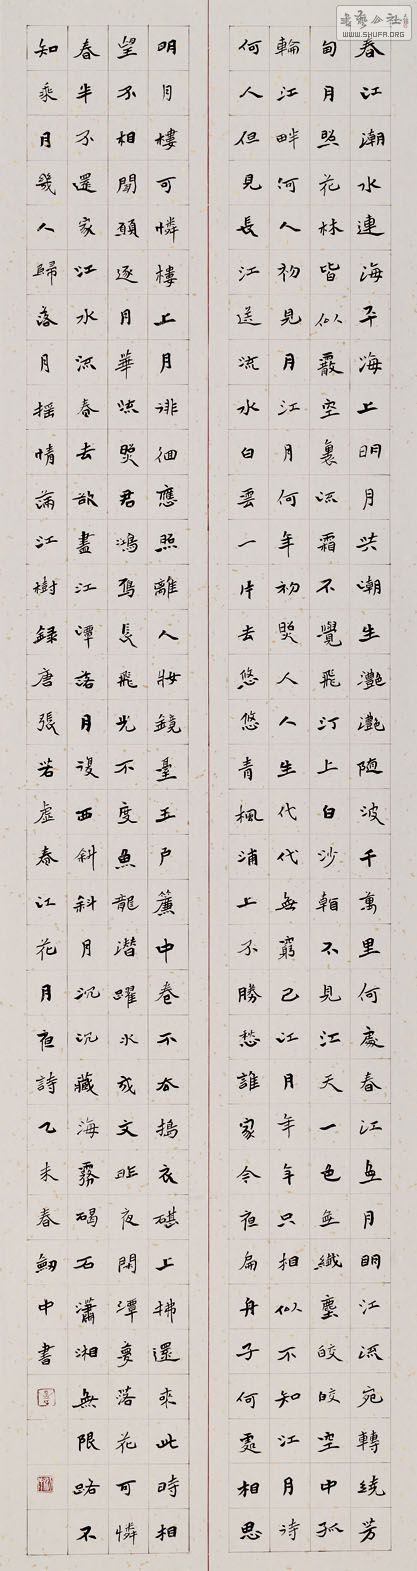 春江潮水連海平海上明月共潮生灩灩随波千萬里何處春江無月明江流宛轉繞芳
甸月照花林皆似霰空裏流霜不覺飛汀上白沙看不見江天一色無纖塵皎皎空中孤
輪江畔何人初見月江月何年初照人人生代代無窮已江月年年只相似不知江月待
何人但見長江送流水白雲一片去悠悠青楓浦上不勝愁誰家今夜扁舟子何處相思
明月樓可憐樓上月徘徊應照離人妝鏡臺玉戶簾中卷不去搗衣碪上拂還來此時相
望不相聞願逐月華流照君鴻鴈長飛光不度魚龍潛躍水成文昨夜閒潭夢落花可憐
春半不還家江水流春去欲盡江潭落月復西斜斜月沉沉藏海霧碣石瀟湘無限路不
知乘月幾人歸落月搖情滿江樹録唐張若虛春江花月夜詩乙未春劒中書
書藝公社
WWW.SHUFA.ORG